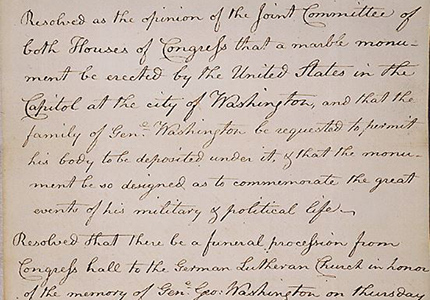 Resolved as the opinion of the Joint Committee of
both Houses of Congress that a marble monu-
ment be erected by the United States in the
Capitol at the city of Washington, and that the
family of Gen.l Washington be requested to permit
his body to be deposited under it, & that the monu-
ment be so designed as to commemorate the great
events of his military & political life.
Resolved that there be a funeral procession from
Congress hall to the German Lutheran Church in honor
of the memory of Gen.l Geo: Washington on thursday